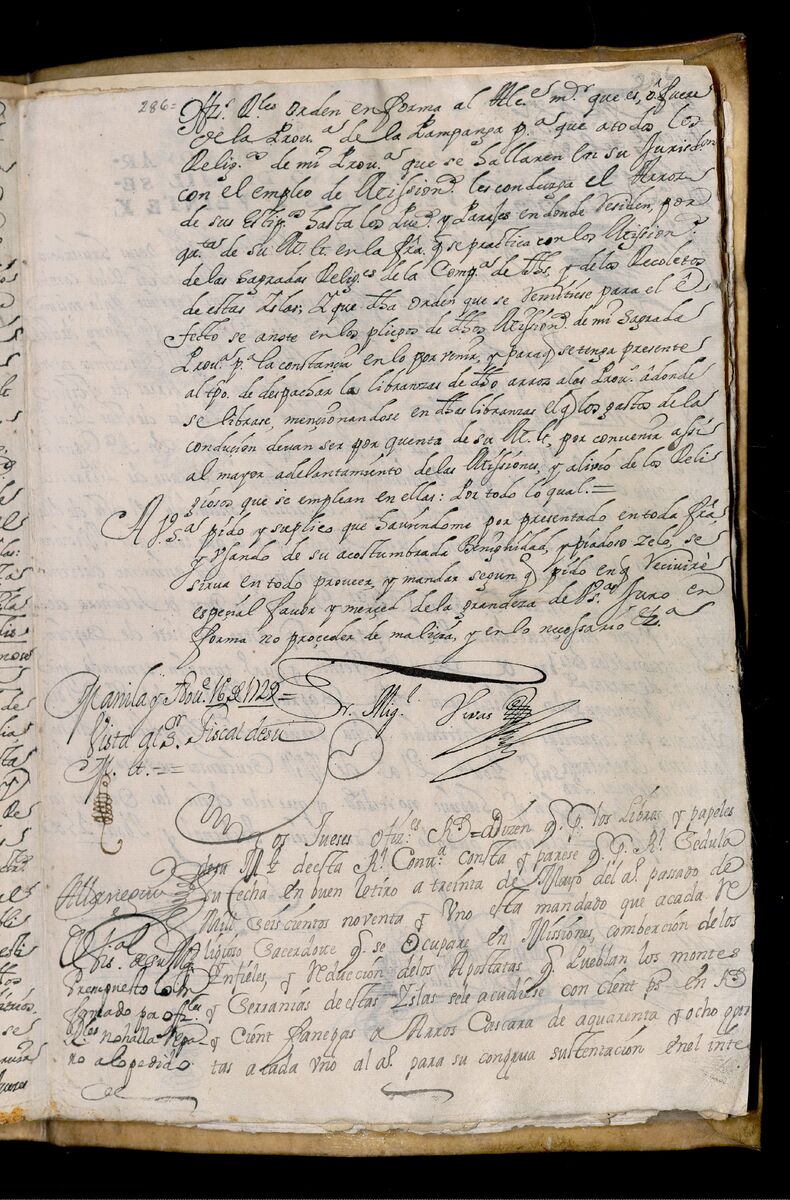 286=
Ofiz.s R.les orden en forma al Alc.e m.r que es, o fuere
de la Prou.a de la Pampanga p.a que a todos los
Relig.os de mi Prou.a que se hallaren en su Jurisd.on
con el empleo de Mission.s les conduzga el Arroz
de sus Estip.os hasta los Pue.s y Parajes en donde residen, por
q.ta de su M. e. en la fr̃a. q̃ se practica con los Mission.s
de las Sagradas Relig.es de la Comp.a de Jhs. y de los Recoletos
de estas Islas; Y que dha orden que se remitiese para el e
fecto se anote en los pliegos de dhos Mission.s de mi Sagrada
Prou.a p.a la constancia en lo por venir, y para q̃ se tenga presente
al tpo. de despachar las libranzas de dho arroz a las Prou.s a donde
se librase, mencionandose en dhas libranzas el q̃ los gastos de la
condución devan ser por quenta de su M. e. por convenir assi
al mayor adelantamiento de las Missiones, y alivio de los Reli
giosos que se emplean en ellas: Por todo lo qual.=
A V.S.a pido y suplico que haviendome por presentado en toda fr̃a.
y usando de su acostumbrada Benignidad, y piadoso zelo, se
sirva en todo proveer, y mandar segun q̃ pido en q̃ recivirè
especial favor y merced de la grandeza de V.S.a Juro en
forma no proçeder de malicia, y en lo necessario etz.a
Manila y Nou.e 16 de 1729=
Fr. Mig.l Vivas
Vista al S.r Fiscal de su
M. e.=
Los Jueses ofiz.es R.s = Dizen q̃ p.r los Libros y papeles
desu M.d de esta R.l Contt.a consta y parese q̃ p.r R.l Cedula
su fecha en buen Retiro a treinta de Mayo del a.o passado de
Mill Seiscientos noventa y uno esta mandado que acada Re
ligioso Sacerdote q̃ se ocupare en Missiones, combercion de los
Infieles, y reduccion de los Apostatas q̃ Pueblan los montes
y Serranias de estas Islas sele acudiese con cient p.s en R.s
y cient fanegas de Arros Cascara de aquarenta y ocho quar
tas a cada uno al a.o para su congrua sustentacion en el inte
El Fis.al de su Mag.d
no halla repa-
ro alo pedido